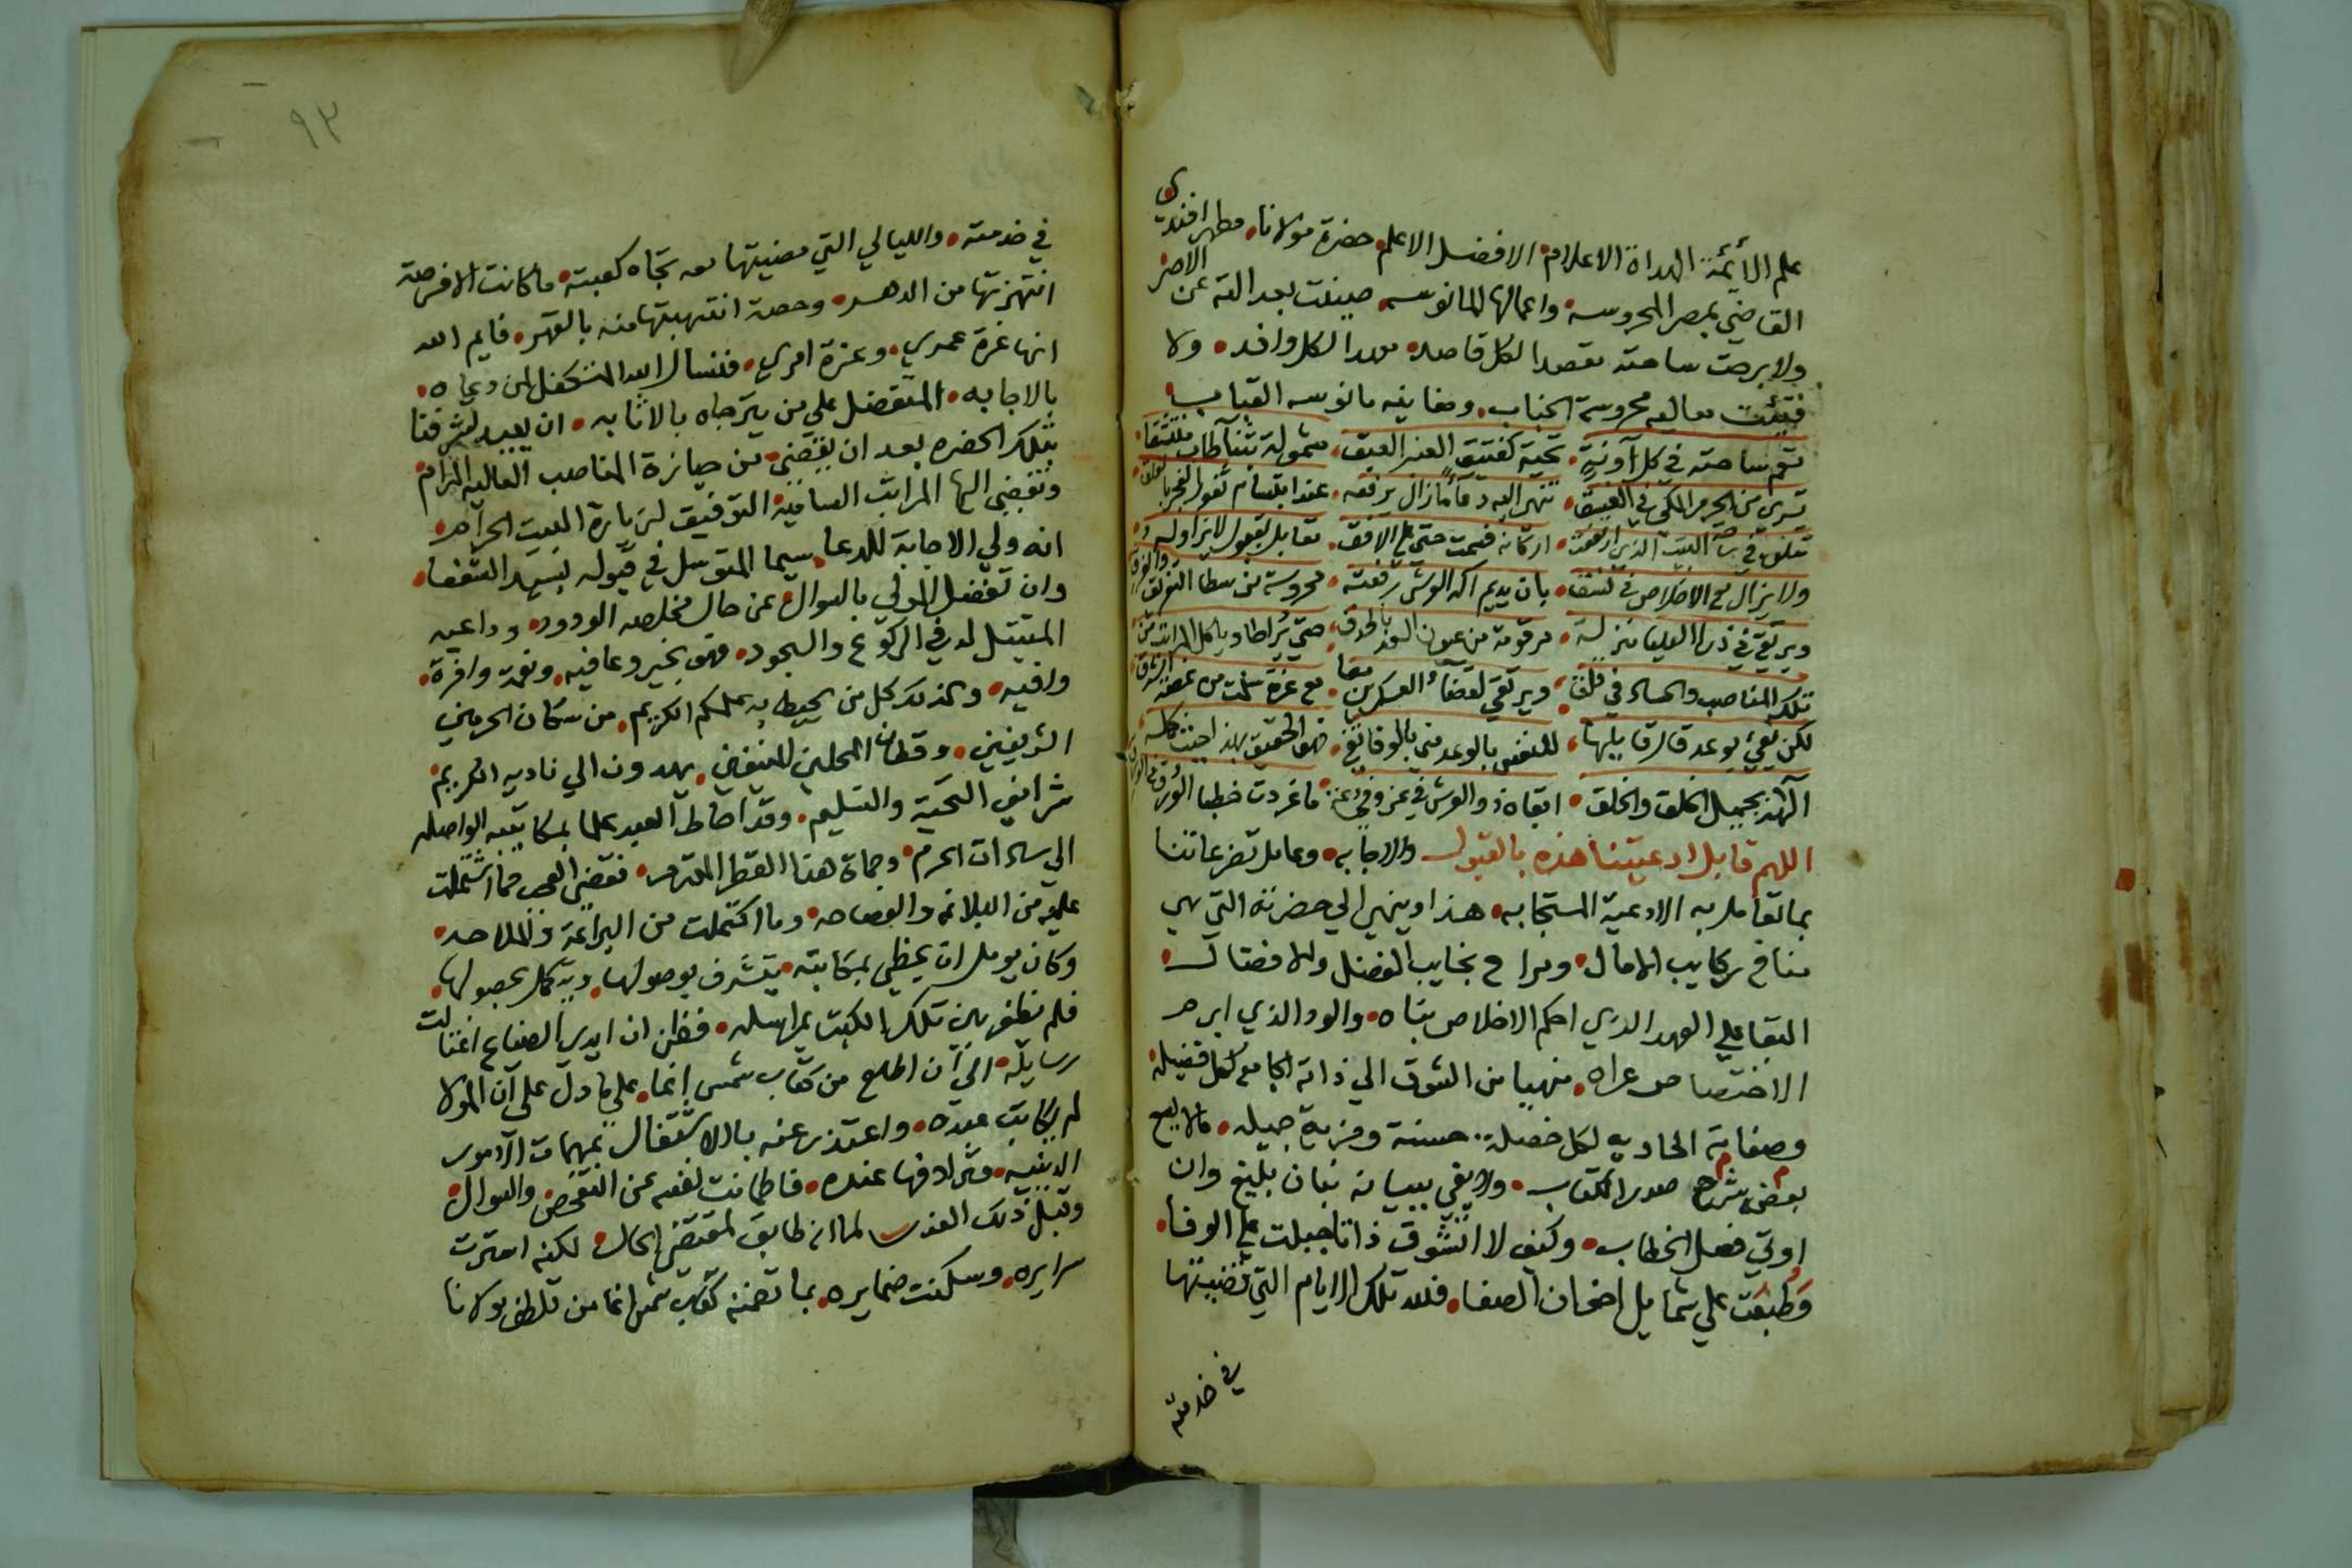 علم الأئمة الهداة الاعلام • الافضل الاعلم • حضرة مولانا • مطهر افندي
القاضي بمصر المحروسة • واعمالها المانوسه • صينت بعدالته عن
ولا برحت ساحته مقصدا لكل قاصد • موردا لكل وافد • ولا
فتئت معاليه محروسة الجناب • ومغانيه مانوسه القباب
تؤم ساحته في كل آونةٍ • تحية كفتيق العنبر العبق • مشمولة بثنآ طاب
تسري من الحرم المكي في الغسق • عند ابتسام ثغور الفجر
في ساحة البيت الذي ارتفعت • اركانه فسمت حتى على الافق • تقابل بقبول لا يزاوله
ولا يزال مع الاخلاص في نسق • بان يديم اله العرش رفعته • محروسة من سطا
ويرتقي في ذرا العليا منزلة • مرقومة من عيون السعد بالحدق
تلك المناصب والحساد في قلق • ويرتقي لقضآء العسكرين معا • مع عزة سلمت من
لكن يفي بوعد قال قايلها • للنفس بالوعد مني بالوفا
بجميل الخلق والخلق • ابقاه ذو العرش في عز وفي دعة • ما غردت خطبا الورق
اللهم قابل ادعيتنا هذه بالقبول والاجابه • وعامل تضرعاتنا
بما تعامل به الادعية المستجابه • هذا وينهي الي حضرته التي هي
مناخ ركايب الامال • ومراح نجايب الفضل والافضال •
البقا علي العهد الذي احكم الاخلاص بناه • والود الذي ابرم
الاختصاص عراه • منهيا من الشوق الي ذاته الجامعة لكل فضيلة •
وصفاته الحاويه لكل خصلة حسنة ومزية جميله • مالا يسع
بعض شرحه صدر الكتاب • ولا يفي ببيانه بنان بليغ وان
اوتي فصل الخطاب • وكيف لا اتشوق ذاتا جبلت علي الوفا •
وطبعت علي شمايل اخوان الصفا • فلله تلك الايام التي قضيتها
في خدمته
٩٣
في خدمته • والليالي التي مضيتها معه تجاه كعبته • ما كانت الا فرصة
انتهزتها من الدهر • وحصة انتهبتها منه بالقهر • فايم الله
انها غرة عمري • وعزة امري • فنسال الله المتكفل لمن دعاه •
بالاجابه • المتفضل علي من يترجاه بالاثابه • ان يعيد لشرفنا
بتلك الحضره بعد ان يقضى من حيازة المناصب العاليه المرام
وتفضي اليها المراتب الساميه التوفيق لزيارة البيت الحرام •
انه ولي الاجابة للدعا • سيما المتوسل في قبوله بسيد الشفعا •
وان تفضل المولي بالسوال عن حال مخلصه الودود • وداعيه
المبتهل له في الركوع والسجود • فهو بخير وعافيه • ونعمة وافرة •
وافيه • وكذلك كل من يحيط به علمكم الكريم • من سكان الحرمين
الشريفين • وقطان المحلين المنيفين • يهدون الي ناديه الكريم
شرايف التحية والتسليم • وقد احاط العبد علما بمكاتيبه الواصله
الي سادات الحرم • وحماة هذا القطر المحترم • فقضى العجب مما اشتملت
عليه من البلاغه والفصاحه • وما اكتملت من البراعة والملاحه •
وكان يومل ان يحظى بمكاتبته • يتشرف بوصولها • ويتجمل بحصولها •
فلم يظفر بين تلك الكتب بمراسله • فظن ان ايدي الضياع اغتالت
رسايله • الي آن اطلع من كتاب شمس انما • علي ما دل علي آن المولا
لم يكاتب عبده • واعتذر عنه بالاشتغال بمهمات الآمور
الدينيه • وترادفها عنده • فاطمانت نفسه عن التفحص والسوال •
وقبل ذلك العذر لما انه طابق لمقتضى الحال • لكنه استرت
سرايره • وسكنت ضمايره • بما تضمنه كتاب شمس انما من تلطف مولانا